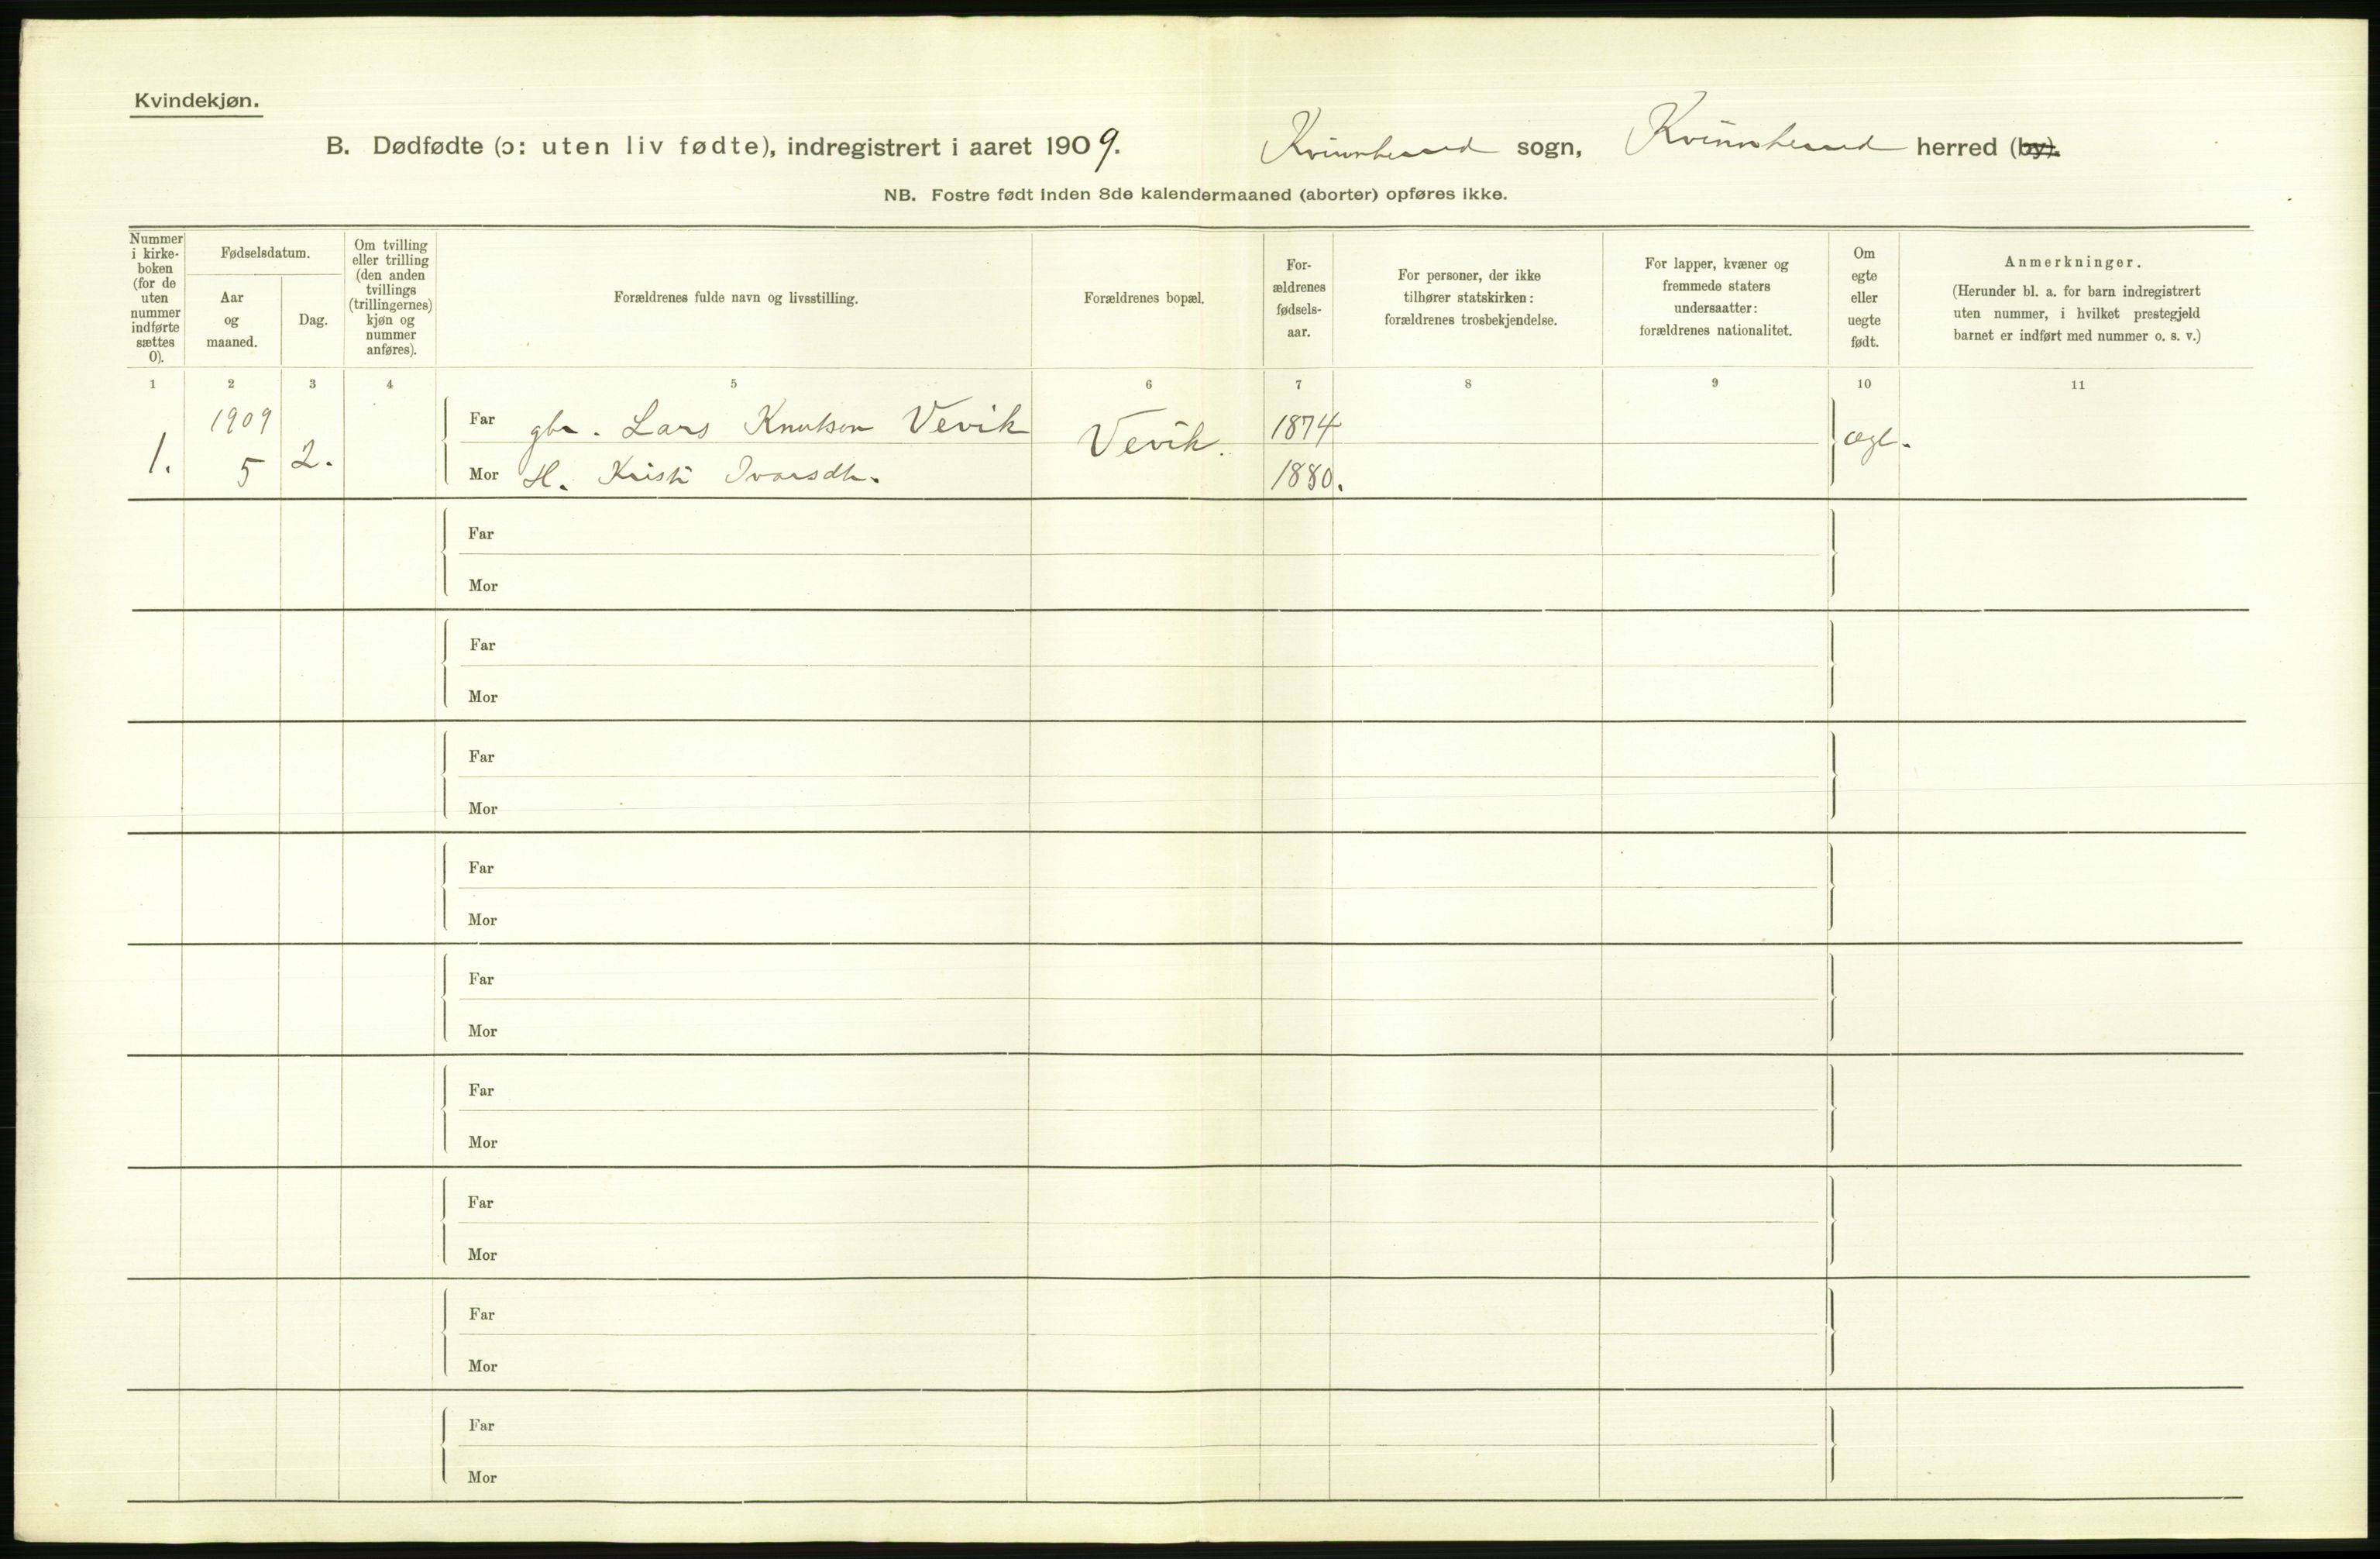 Kvindekjøn.
B. Dødfødte (ɔ: uten liv fødte), indregistrert i aaret 1909. Kvinnherred sogn, Kvinnherred herred (by).
NB. Fostre født inden 8de kalendermaaned (aborter) opføres ikke.
Nummer
i kirke-
boken
(for de
uten
nummer
indførte
sættes
0).
Fødselsdatum.
Aar
og
maaned.
Dag.
Om tvilling
eller trilling
(den anden
tvillings
(trillingernes)
kjøn og
nummer
anføres).
Forældrenes fulde navn og livsstilling.
Forældrenes bopæl.
For-
ældrenes
fødsels-
aar.
For personer, der ikke
tilhører statskirken:
forældrenes trosbekjendelse.
For lapper, kvæner og
fremmede staters
undersaatter:
forældrenes nationalitet.
Om
egte
eller
uegte
født.
Anmerkninger.
(Herunder bl. a. for barn indregistrert
uten nummer, i hvilket prestegjeld
barnet er indført med nummer o. s. v.)
1 2 3 4 5 6 7 8 9 10 11
1909 Far gbr. Lars Knutsen Vevik 1874
1. 5 2. Vevik. ægt.
Mor H. Kristi Ivarsdtr. 1880.
Far
Mor
Far
Mor
Far
Mor
Far
Mor
Far
Mor
Far
Mor
Far
Mor
Far
Mor
Far
Mor